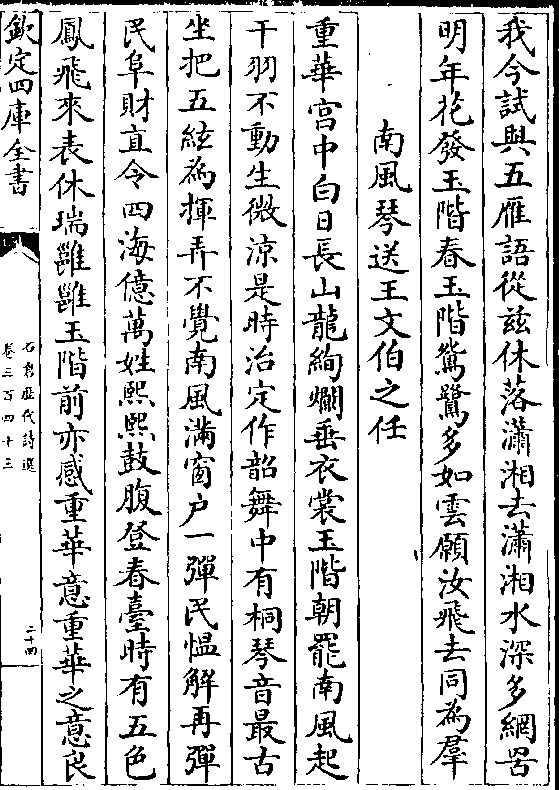 我今試與五雁語從茲休落瀟湘去瀟湘水深多網罟
明年花發玉階春玉階鴛鷺多如雲願汝飛去同為羣
南風琴送王文伯之任
重華宮中白日長山龍絢爛垂衣裳玉階朝罷南風起
干羽不動生微涼是時治定作韶舞中有桐琴音最古
坐把五絃為揮弄不覺南風滿窗户一彈民愠解再彈
民阜財直令四海億萬姓熙熙鼓腹登春臺時有五色
鳳飛來表休瑞雝雝玉階前亦感重華意重華之意良
欽定四庫全書
石倉歷代詩選
卷三百四十三
二十四